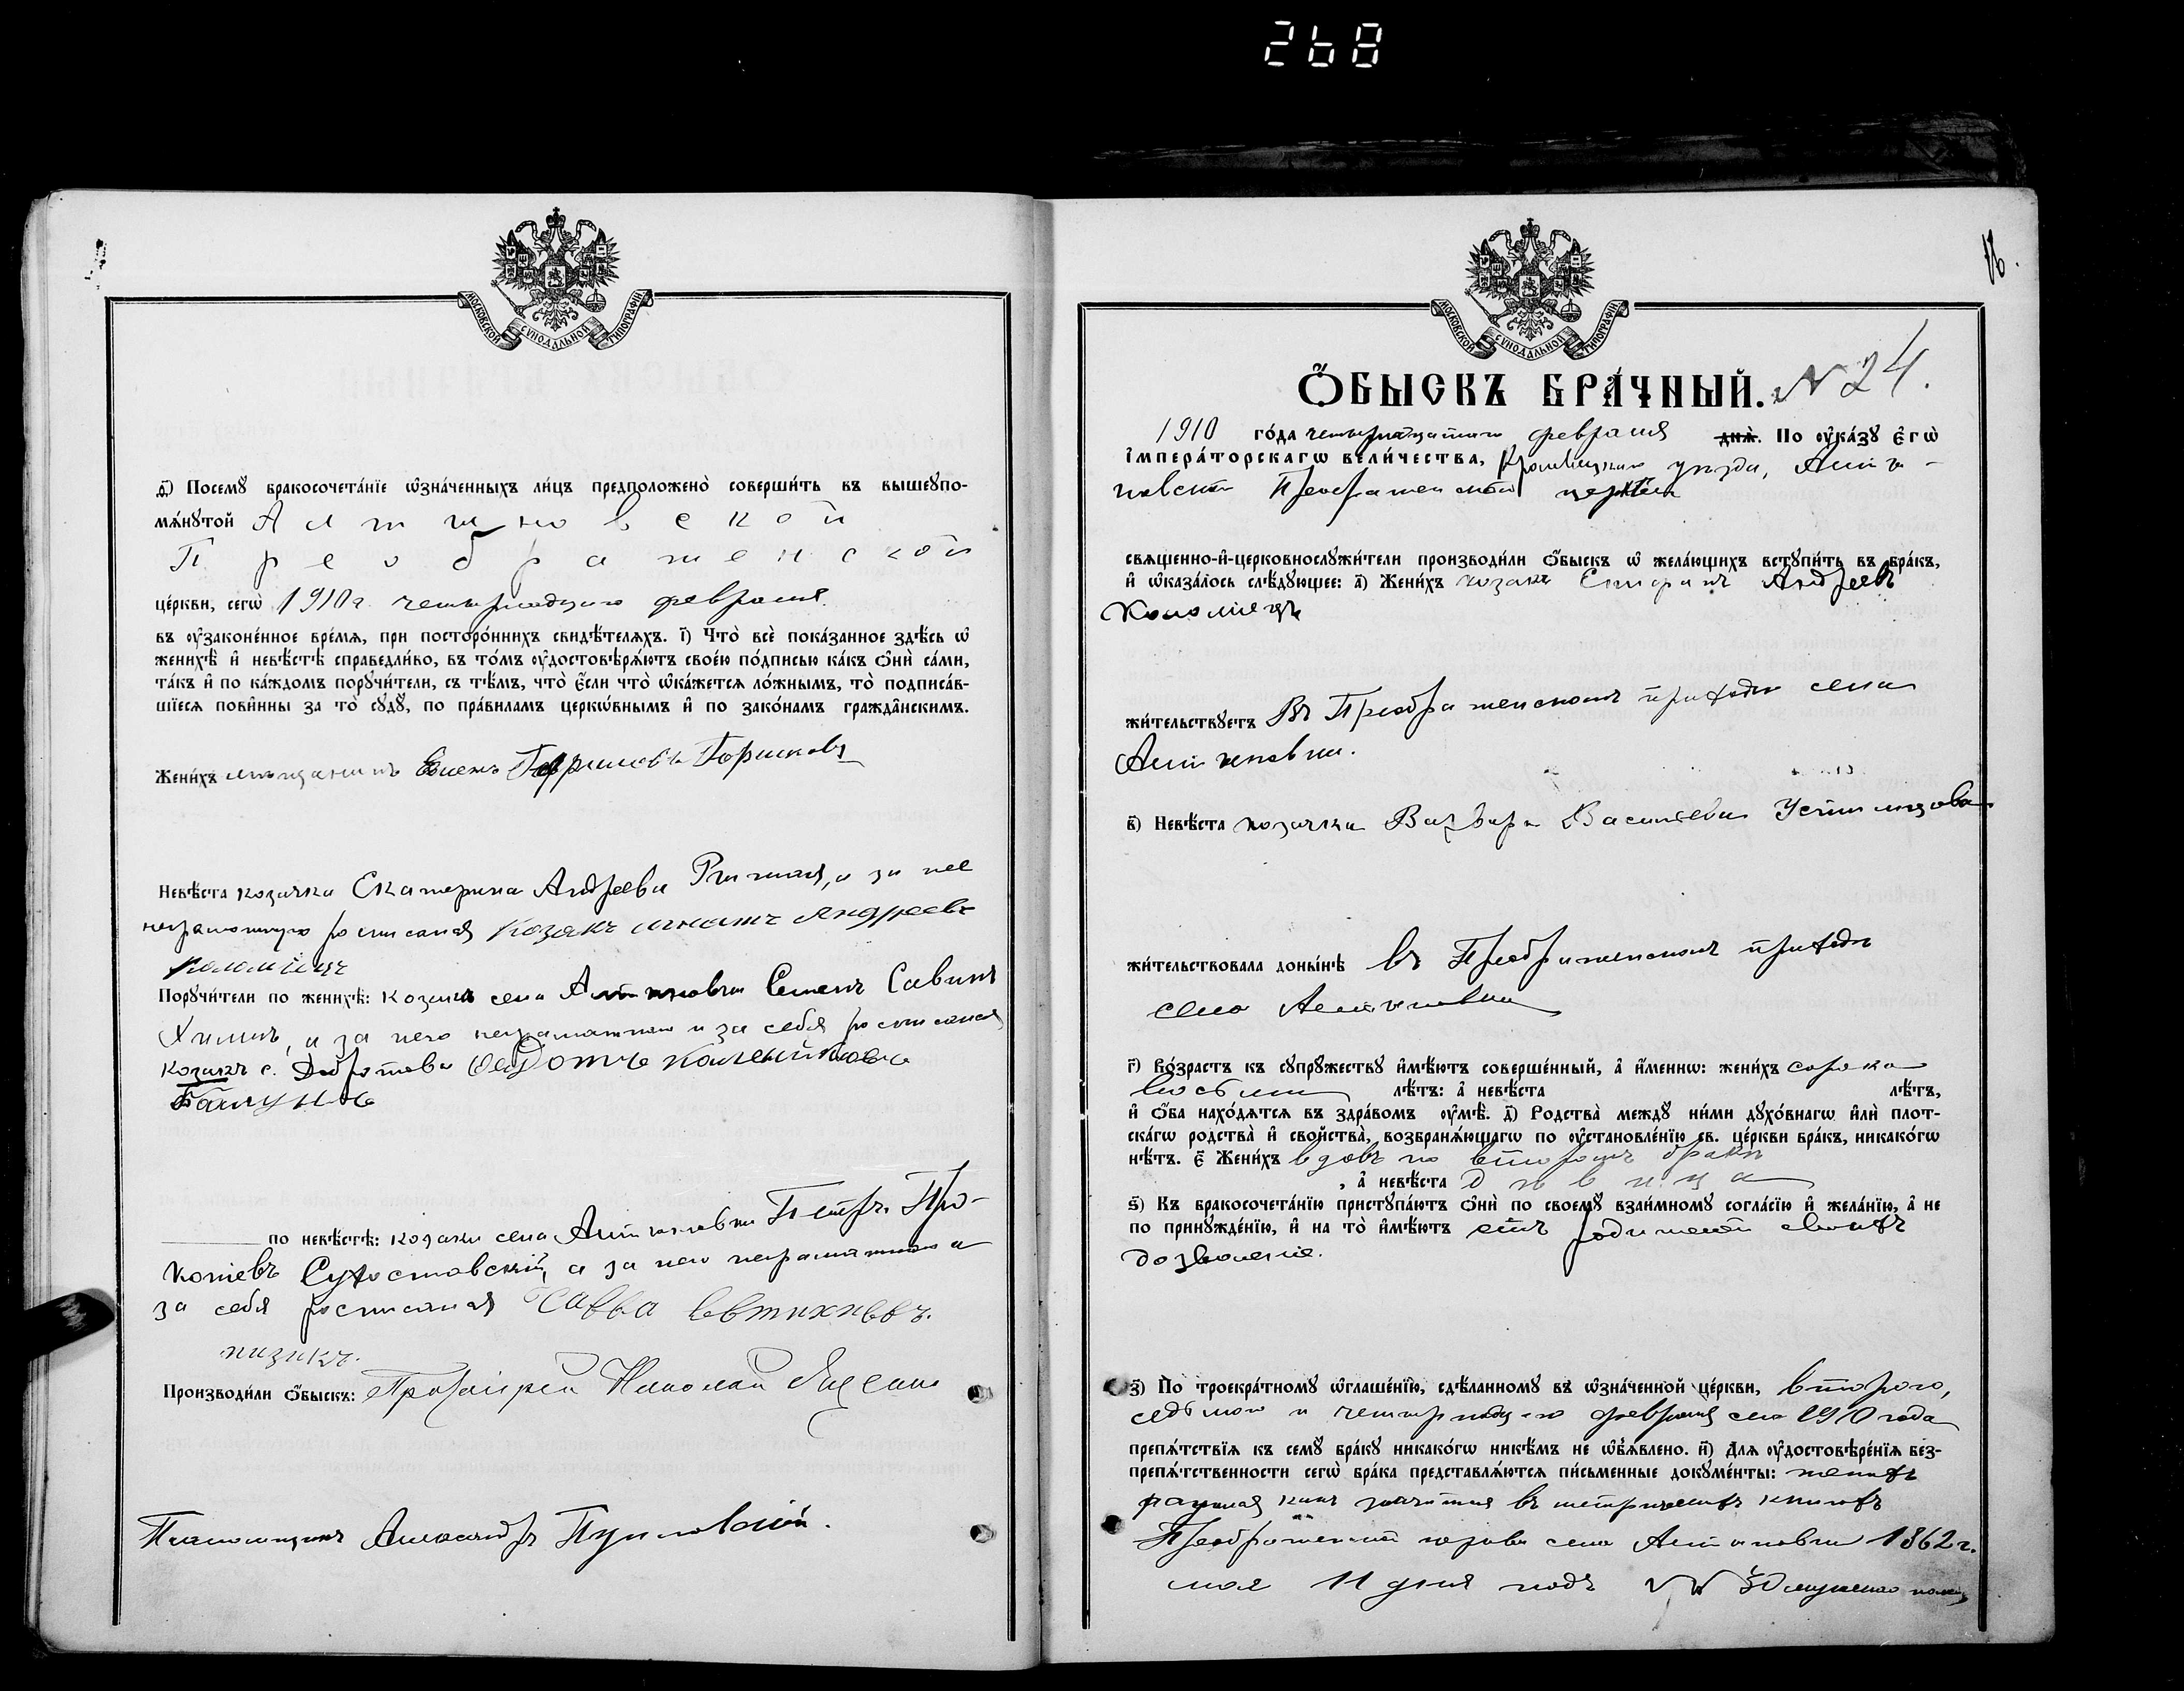 268
МОСКОВСКОЙ СѴНОДАЛЬНОЙ ТИПОГРАФІИ
д҃і) Посемꙋ бракосочета́нїе ѡ҆зна́ченныхъ ли́цъ предположено̀ соверши́ть въ вышеꙋпо-
мѧ́нꙋтой Алтыновской
Преображенской
це́ркви, сегѡ̀ 1910 г. четырнадцаго февраля.
въ ᲂу҆зако́ненное вре́мѧ, при посторо́ннихъ свидѣ́телѧхъ. і҃) Что̀ всѐ пока́занное здѣ́сь ѡ҆
женихѣ̀ и҆ невѣ́стѣ справедли́во, въ то́мъ ᲂу҆достовѣрѧ́ютъ свое́ю по́дписью ка́къ ѻ҆нѝ са́ми,
та́къ и҆ по ка́ждомъ порꙋчи́тели, съ тѣ́мъ, что̀ є҆́сли что̀ ѡ҆ка́жетсѧ ло́жнымъ, то̀ подписа́в-
шїесѧ пови́нны за то̀ сꙋдꙋ̀, по пра́виламъ церкѡ́внымъ и҆ по зако́намъ гражда̂нскимъ.
Жени́хъ мѣщанинъ Гавриловъ Горшковъ
Невѣ́ста козачка Екатерина Андреева а за нее
неграмотную росписался Козакъ Игнатъ Андреевъ
Коломіецъ
Порꙋчи́тели по женихѣ̀: козаки села Алтыновки Семенъ Савинъ
Химинъ, а за него неграмотнаго и за себя росписался
козакъ с. Добротова Федотъ
по невѣ́стѣ: козаки села Алтыновки Петръ Про-
копіевъ Сухоставскій, а за него неграмотнаго и
за себя росписался Савва Евтихиевъ.
пизикъ.
Производи́ли ѻ҆́быскъ: Протоіерей Николай
Псаломщикъ Александръ
16.
МОСКОВСКОЙ СѴНОДАЛЬНОЙ ТИПОГРАФІИ
Ѻ҆́БЫСКЪ БРА́ЧНЫЙ. № 24.
1910 го́да четырнадцатаго февраля днѧ̀. По ᲂу҆ка́зꙋ є҆гѡ̀
і҆мпера́торскагѡ вели́чества, Кролевецкаго уѣзда, Алты-
новской Преображенской церкви
свѧщенно-и҆-церковнослꙋжи́тели производи́ли ѻ҆́быскъ ѡ҆ жела́ющихъ встꙋпи́ть въ бра́къ,
и҆ ѡ҆каза́лось слѣ́дꙋющее: а҃) Жени́хъ козакъ Епифанъ Андреевъ
Коломіецъ
жи́тельствꙋетъ Въ Преображенскомъ приходѣ села
Алтыновки.
в҃) Невѣ́ста козачка Варвара Васильева Устимцова
жи́тельствовала доны́нѣ въ Преображенскомъ приходѣ
села Алтыновки
г҃) Во́зрастъ къ сꙋпрꙋ́жествꙋ и҆мѣ́ютъ соверше́нный, а҆ и҆́меннѡ: жени́хъ сорока
восьми лѣ́тъ: а҆ невѣ́ста лѣ́тъ,
и҆ ѻ҆́ба нахо́дѧтсѧ въ здра́вомъ ᲂу҆мѣ̀. д҃) Родства̀ междꙋ ни́ми дꙋхо́внагѡ и҆лѝ плот-
ска́гѡ родства̀ и҆ сво́йства, возбранѧ́ющагѡ по ᲂу҆становле́нїю св. це́ркви бра́къ, никако́гѡ
нѣ́тъ. є҃) Жени́хъ вдовъ по второмъ бракѣ
, а҆ невѣ́ста дѣвица
ѕ҃) Къ бракосочета́нїю пристꙋпа́ютъ ѻ҆нѝ по своемꙋ̀ взаи́мномꙋ согла́сїю и҆ жела́нїю, а҆ не
по принꙋжде́нїю, и҆ на то̀ и҆мѣ́ютъ отъ родителей своихъ
дозволеніе.
з҃) По троекра́тномꙋ ѡ҆глаше́нїю, сдѣ́ланномꙋ въ ѡ҆зна́ченной це́ркви, второго,
седьмого и четырнадц-го февраля сего 1910 года
препѧ́тствїѧ къ семꙋ̀ бра́кꙋ никако́гѡ никѣ́мъ не ѡ҆б̾ѧ́влено. и҃) Длѧ ᲂу҆достовѣре́нїѧ без-
препѧ́тственности сегѡ̀ бра́ка представлѧ́ютсѧ пи́сьменные докꙋме́нты: женихъ
родился какъ значится въ метрическихъ книгахъ
Преображенской церкви села Алтыновки 1862 г.
мая 11 дня подъ №